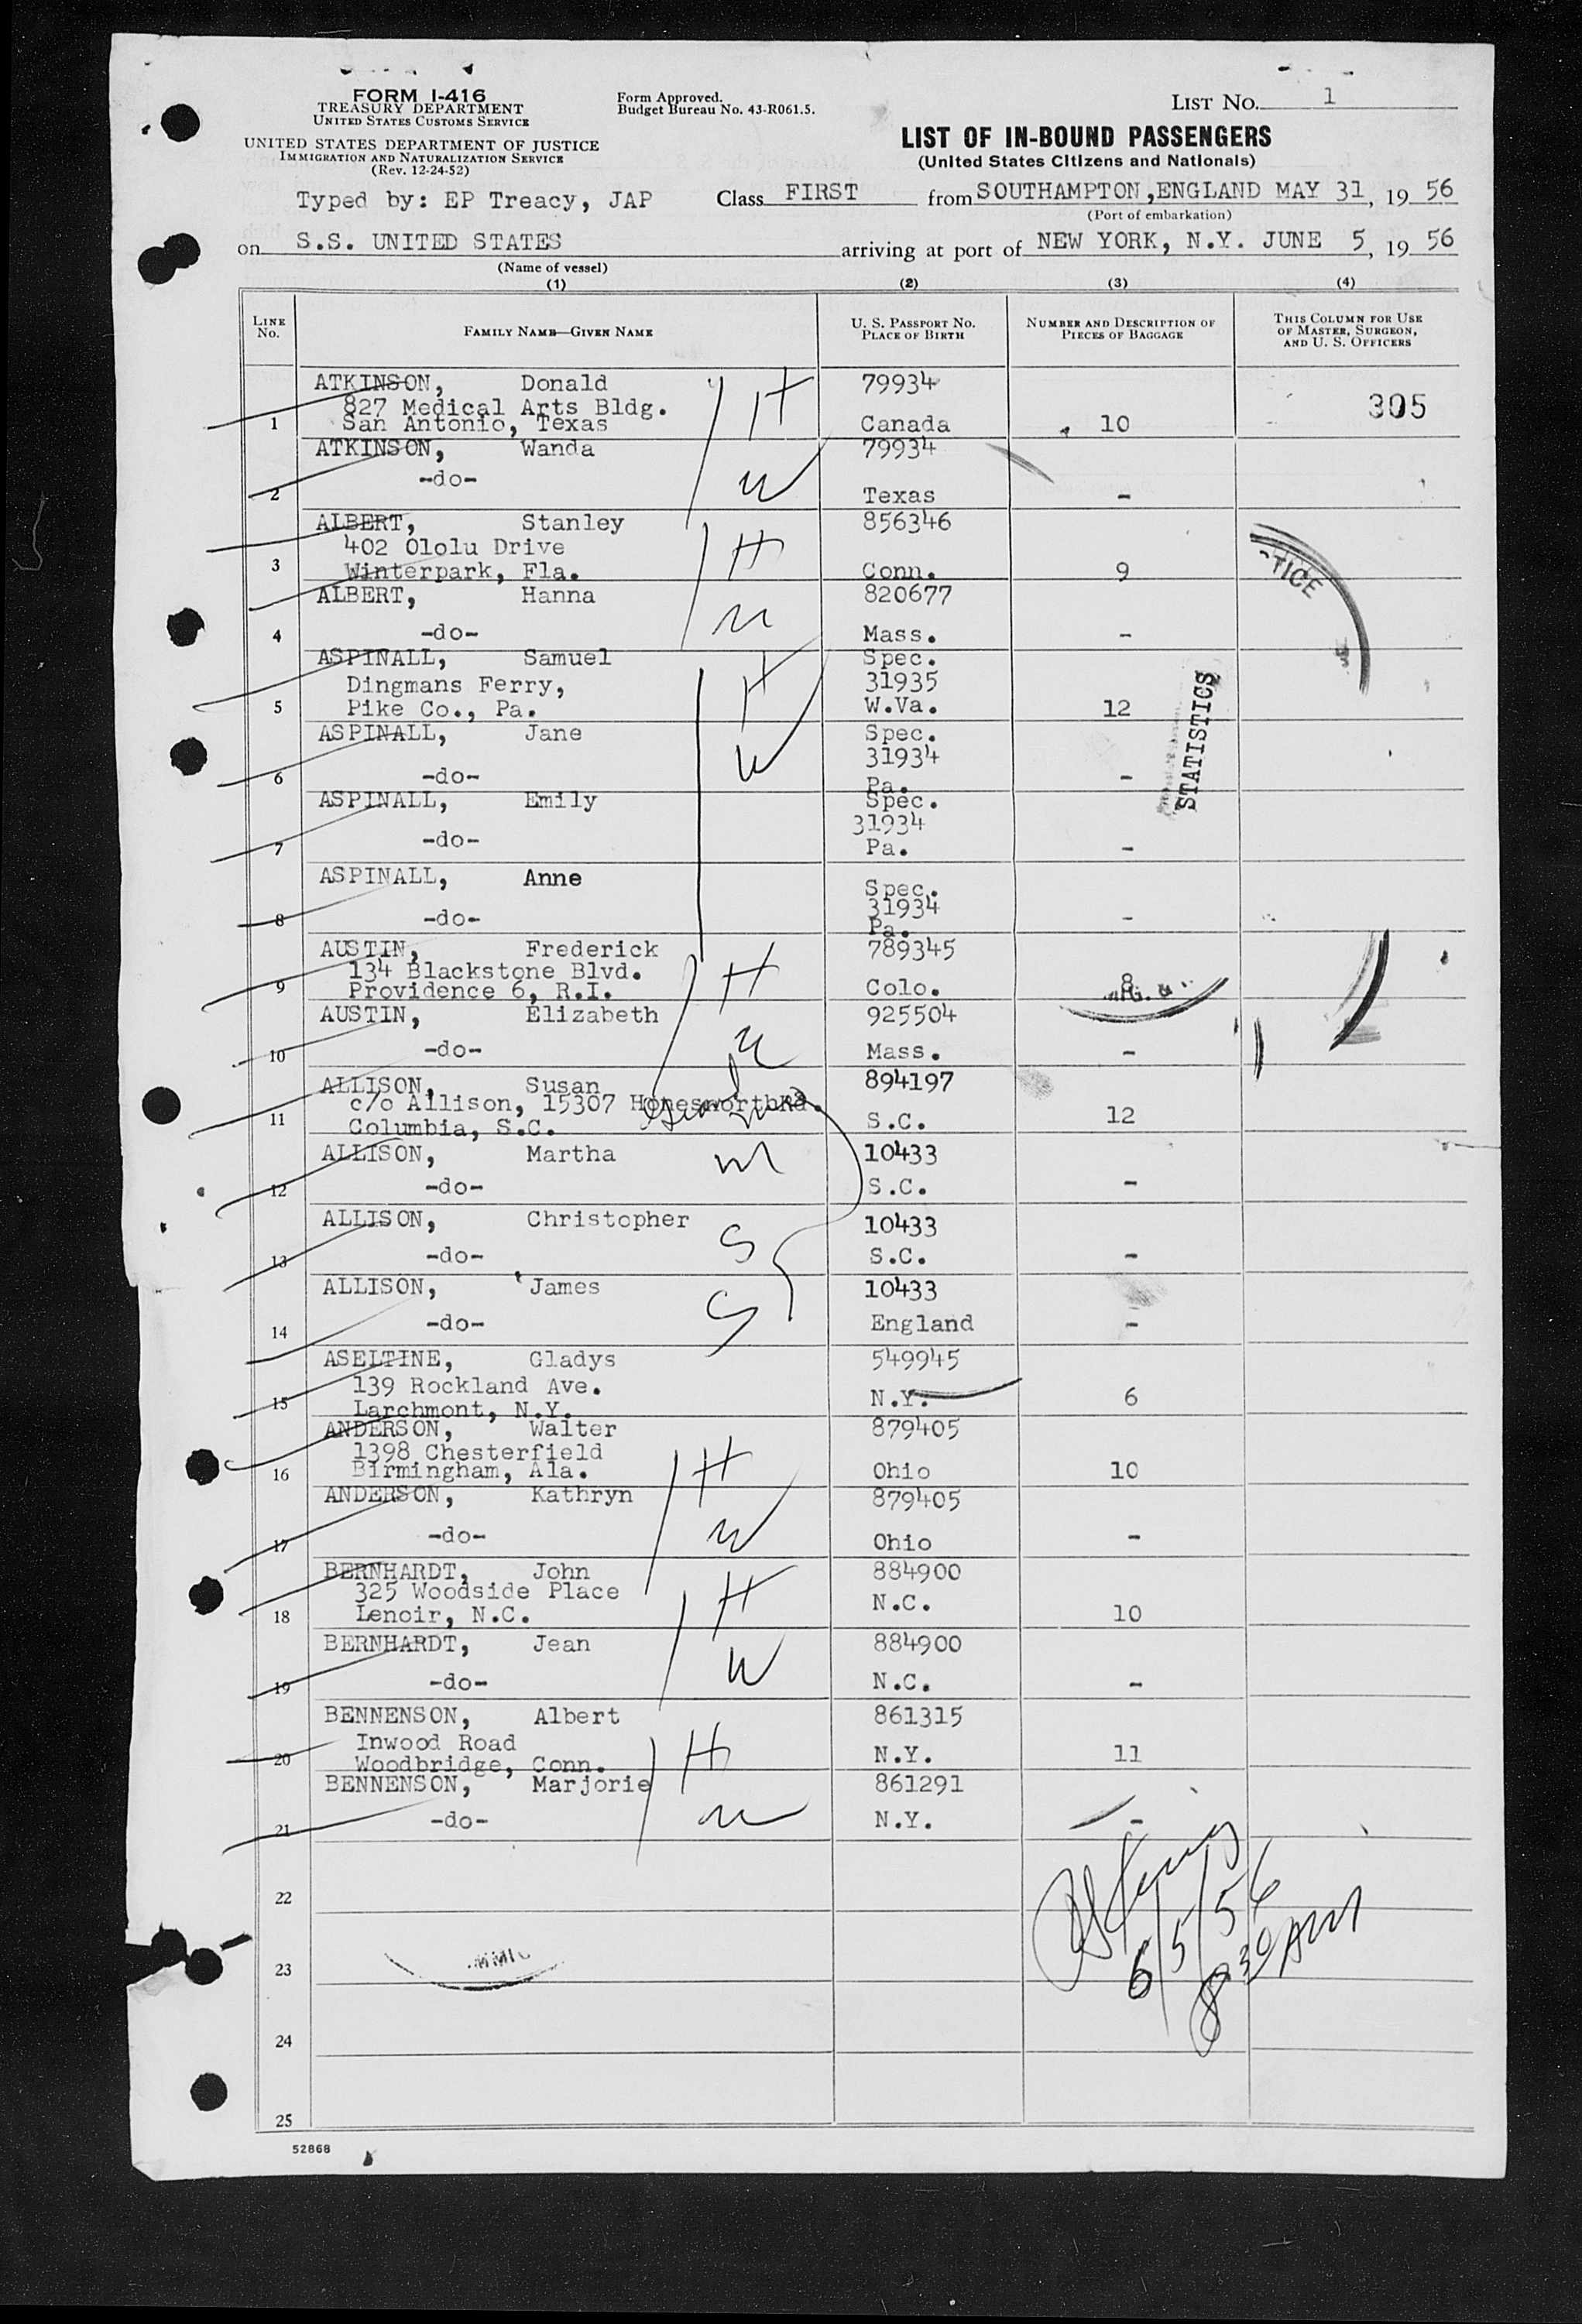 FORM I-416
TREASURY DEPARTMENT
UNITED STATES CUSTOMS SERVICE
UNITED STATES DEPARTMENT OF JUSTICE
IMMIGRATION AND NATURALIZATION SERVICE
(Rev. 12-24-52)
Form Approved.
Budget Bureau No. 43-R061.5.
LIST NO. 1
LIST OF IN-BOUND PASSENGERS
(United States Citizens and Nationals)
Typed by: EP Treacy, JAP Class FIRST from SOUTHAMPTON, ENGLAND MAY 31, 19 56
(Port of embarkation)
on S.S. UNITED STATES arriving at port of NEW YORK, N.Y. JUNE 5, 19 56
(Name of vessel)
(1) (2) (3) (4)
LINE No. FAMILY NAME—GIVEN NAME U. S. PASSPORT NO. PLACE OF BIRTH NUMBER AND DESCRIPTION OF PIECES OF BAGGAGE THIS COLUMN FOR USE OF MASTER, SURGEON, AND U. S. OFFICERS
ATKINSON, Donald H 79934
827 Medical Arts Bldg. 305
1 San Antonio, Texas Canada 10
ATKINSON, Wanda 79934
-do- W
2 Texas -
ALBERT, Stanley 856346
402 Ololu Drive H
3 Winterpark, Fla. Conn. 9
-TICE
ALBERT, Hanna 820677
4 -do- W Mass. -
ASPINALL, Samuel Spec.
Dingmans Ferry, H 31935
5 Pike Co., Pa. W.Va. 12
STATISTICS
ASPINALL, Jane Spec.
W 31934
6 -do- Pa. -
ASPINALL, Emily Spec.
31934
7 -do- Pa. -
ASPINALL, Anne Spec.
31934
8 -do- Pa. -
AUSTIN, Frederick 789345
134 Blackstone Blvd. H
9 Providence 6, R.I. Colo. 8
AUSTIN, Elizabeth 925504
10 -do- W Mass. -
ALLISON, Susan 894197
c/o Allison, 15307 HonesworthRd.
11 Columbia, S.C. S.C. 12
ALLISON, Martha M 10433
12 -do- S.C. -
ALLISON, Christopher S 10433
13 -do- S.C. -
ALLISON, James S 10433
14 -do- England -
ASELTINE, Gladys 549945
139 Rockland Ave.
15 Larchmont, N.Y. N.Y. 6
ANDERSON, Walter 879405
1398 Chesterfield H
16 Birmingham, Ala. Ohio 10
ANDERSON, Kathryn 879405
17 -do- W Ohio -
BERNHARDT, John 884900
325 Woodside Place H
18 Lenoir, N.C. N.C. 10
BERNHARDT, Jean 884900
19 -do- W N.C. -
BENNENSON, Albert 861315
Inwood Road H
20 Woodbridge, Conn. N.Y. 11
BENNENSON, Marjorie 861291
21 -do- W N.Y. -
22
6/5/56
23
8 30 AM
24
25
52868